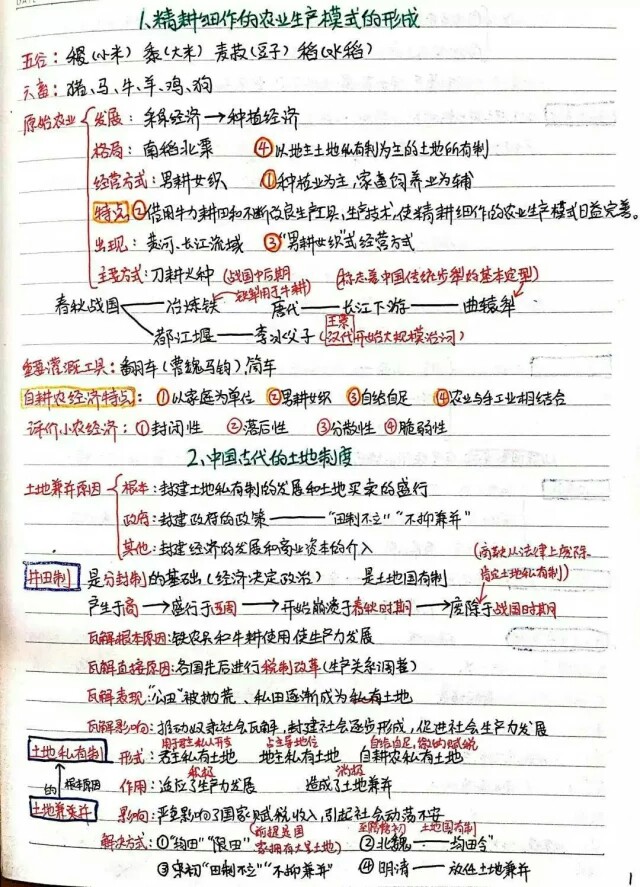 1、精耕细作的农业生产模式的形成
五谷：稷(小米) 黍(大米) 麦菽(豆子) 稻(水稻)
六畜：猪、马、牛、羊、鸡、狗
原始农业
发展：采集经济→种植经济
格局：南稻北粟 ④以地主土地私有制为主的土地所有制
经营方式：男耕女织 ①种植业为主，家畜饲养业为辅
特点 ②借用牛力耕田和不断改良生产工具、生产技术，使精耕细作的农业生产模式日益完善。
出现：黄河、长江流域 ③"男耕女织"式经营方式
主要方式：刀耕火种 (战国中后期 铁犁用于牛耕) (标志着中国传统步犁的基本定型)
春秋战国 冶炼铁 唐代—长江下游—曲辕犁
都江堰—李冰父子(王景 汉代开始大规模治河)
重要灌溉工具：翻车(曹魏马钧)，筒车
自耕农经济特点：①以家庭为单位 ②男耕女织 ③自给自足 ④农业与手工业相结合
评价小农经济：①封闭性 ②落后性 ③分散性 ④脆弱性
2、中国古代的土地制度
土地兼并原因
根本：封建土地私有制的发展和土地买卖的盛行
政府：封建政府的政策——"田制不立""不抑兼并"
其他：封建经济的发展和商业资本的介入
(商鞅从法律上废除，肯定土地私有制)
井田制 是分封制的基础(经济决定政治) 是土地国有制
产生于商→盛行于西周→开始崩溃于春秋时期→废除于战国时期
瓦解根本原因：铁农具和牛耕使用使生产力发展
瓦解直接原因：各国先后进行税制改革(生产关系调整)
瓦解表现："公田"被抛荒、私田逐渐成为私有土地
瓦解影响：推动奴隶社会瓦解，封建社会逐步形成，促进社会生产力发展
用于君主私人开支 占主导地位 自给自足，缴纳赋税
土地私有制 形式：君主私有土地 地主私有土地 自耕农私有土地
积极 消极
的 根本原因 作用：适应了生产力发展 造成了土地兼并
土地兼并 影响：严重影响了国家赋税收入，引起社会动荡不安
解决方式：①"均田""限田"(前提是国家拥有大量土地) ②北魏——均田令 至隋唐初 土地国有制
③宋初"田制不立""不抑兼并" ④明清——放任土地兼并
1